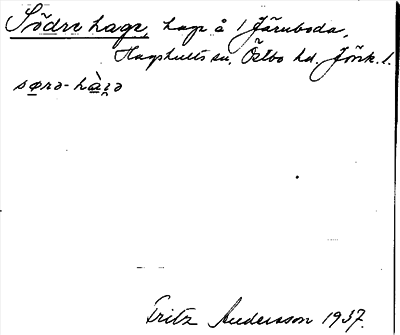 Södre hage, hage å 1 Järnboda,
Hagshults sn, Östbo hd. Jönk. l.
sørə-hàiə
Fritz Andersson 1937.